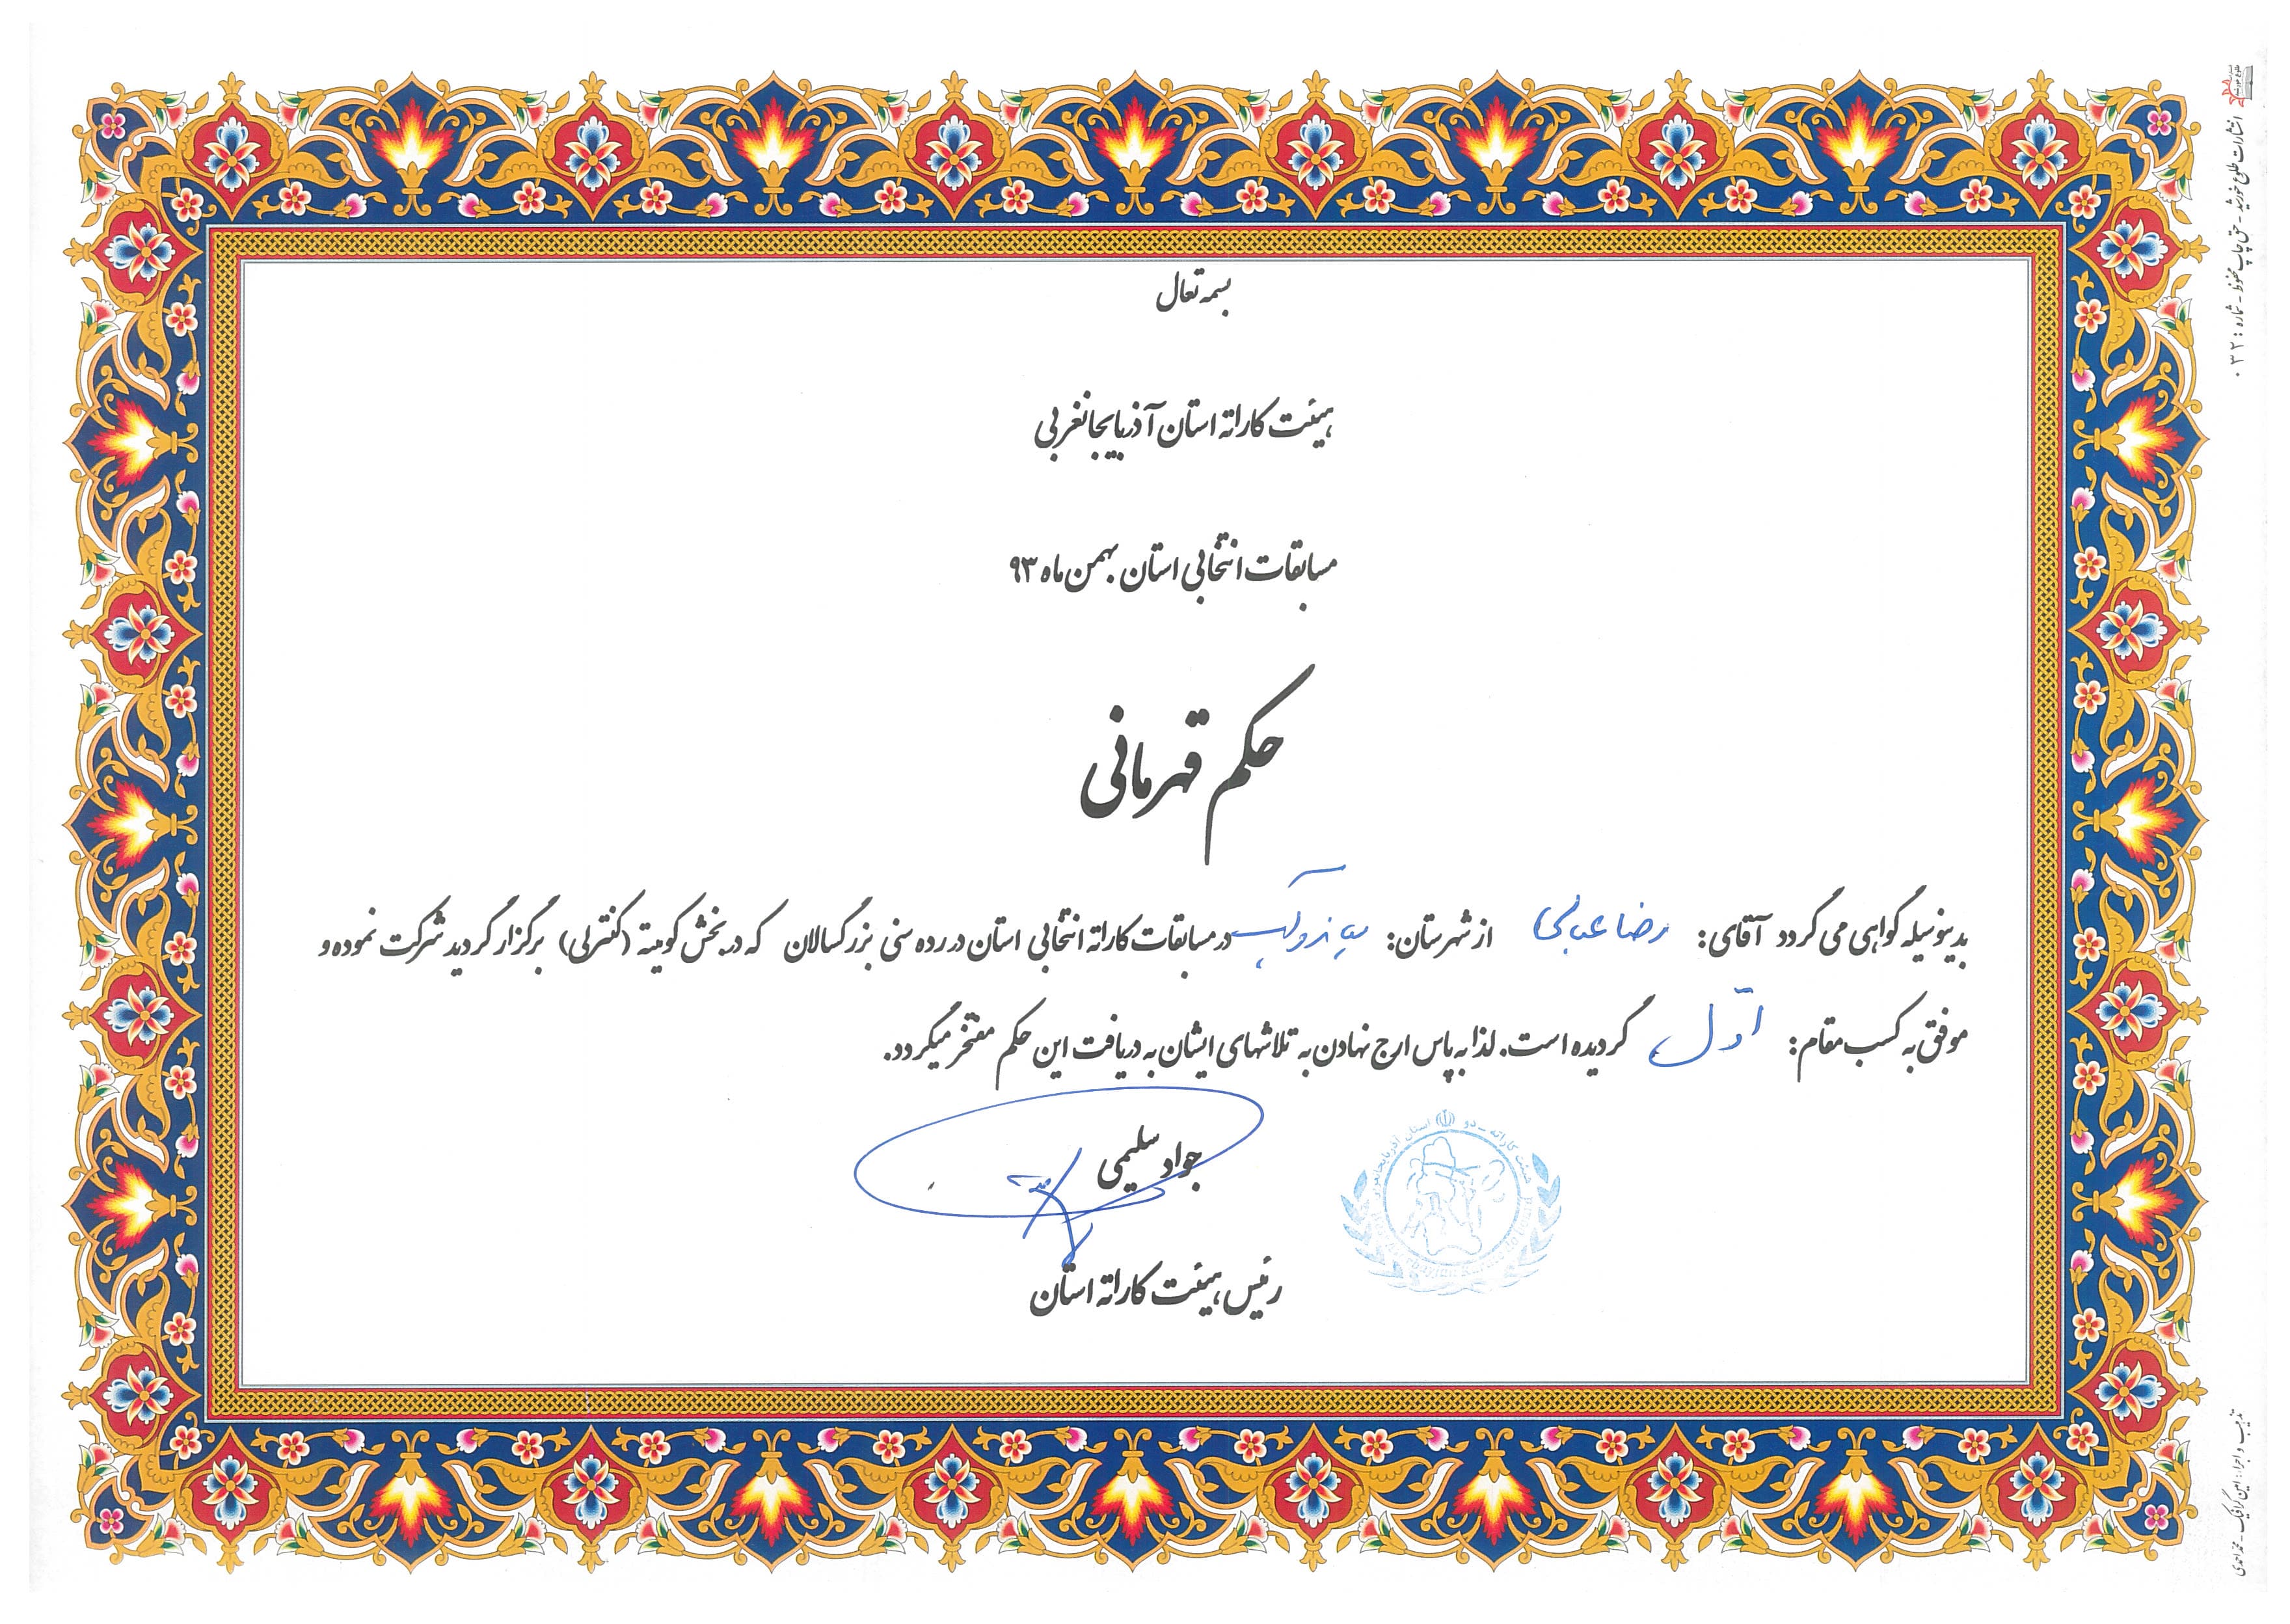 بسمه تعال
هیئت کاراته استان آذربایجانغربی
مسابقات انتخابی استان بهمن ماه ۹۳
حکم قهرمانی
بدینوسیله گواهی می گردد آقای: رضا عباسی از شهرستان: میاندوآب در مسابقات کاراته انتخابی استان در رده سنی بزرگسالان که در بخش کومیته (کنترلی) برگزار گردید شرکت نموده و
موفق به کسب مقام: اوّل گردیده است. لذا به پاس ارج نهادن به تلاشهای ایشان به دریافت این حکم مفتخر میگردد.
جواد سلیمی
رئیس هیئت کاراته استان
هیئت کاراته - دو استان آذربایجانغربی
انتشارات طلوع خورشید - حق چاپ محفوظ - شماره: ۰۳۲
تذهیب و اجرا: امین گرافیک - محمد احمدی